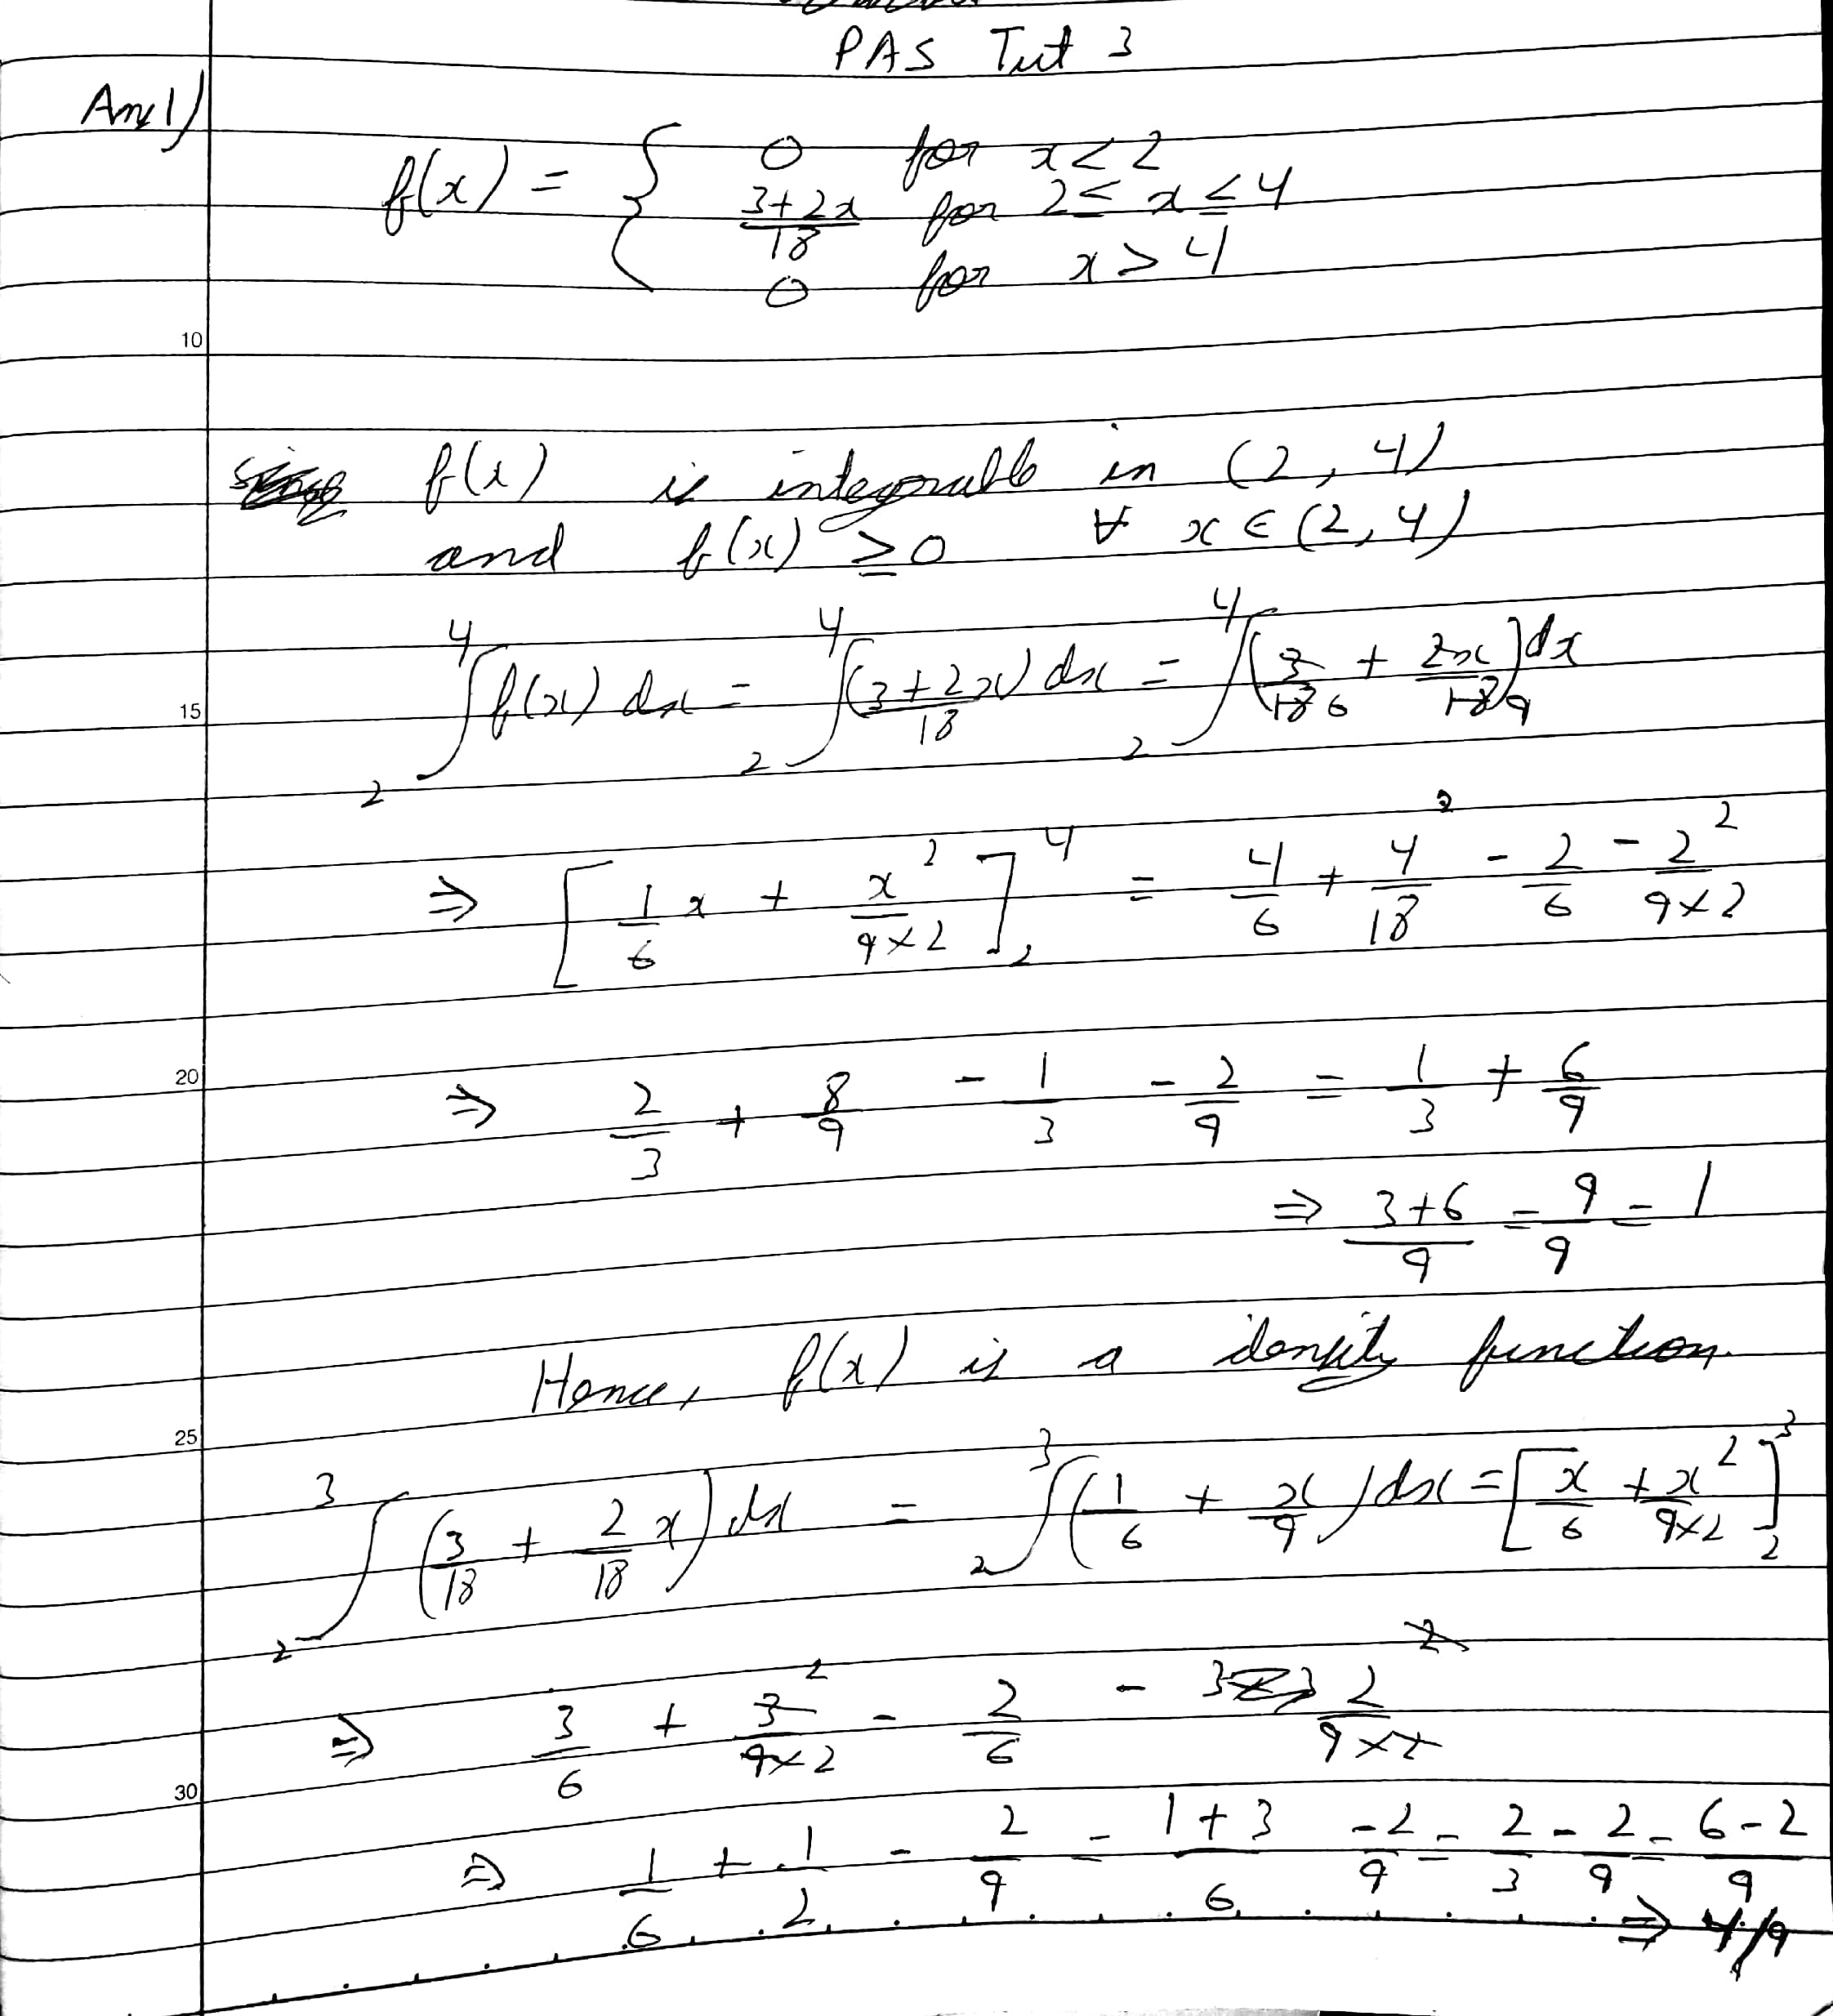 PAS Tut 3
Ans 1)
f(x) = { 0 for x < 2
3+2x/18 for 2 ≤ x ≤ 4
0 for x > 4
10
f(x) is integrable in (2, 4)
and f(x) ≥ 0 ∀ x ∈ (2, 4)
15 ₂∫⁴ f(x) dx = ₂∫⁴ (3+2x)/18 dx = ₂∫⁴ (3/18 6 + 2x/18 9) dx
⇒ [1/6 x + x²/9×2]₂⁴ = 4/6 + 4²/18 - 2/6 - 2²/9×2
20 ⇒ 2/3 + 8/9 - 1/3 - 2/9 = 1/3 + 6/9
⇒ 3+6/9 = 9/9 = 1
Hence, f(x) is a density function.
25
₂∫³ (3/18 + 2/18 x) dx = ₂∫³ (1/6 + x/9) dx = [x/6 + x²/9×2]₂³
⇒ 3/6 + 3²/9×2 - 2/6 - 2²/9×2
30
⇒ 1/6 + 1/2 - 2/9 = 1+3/6 - 2/9 = 2/3 - 2/9 = 6-2/9
⇒ 4/9